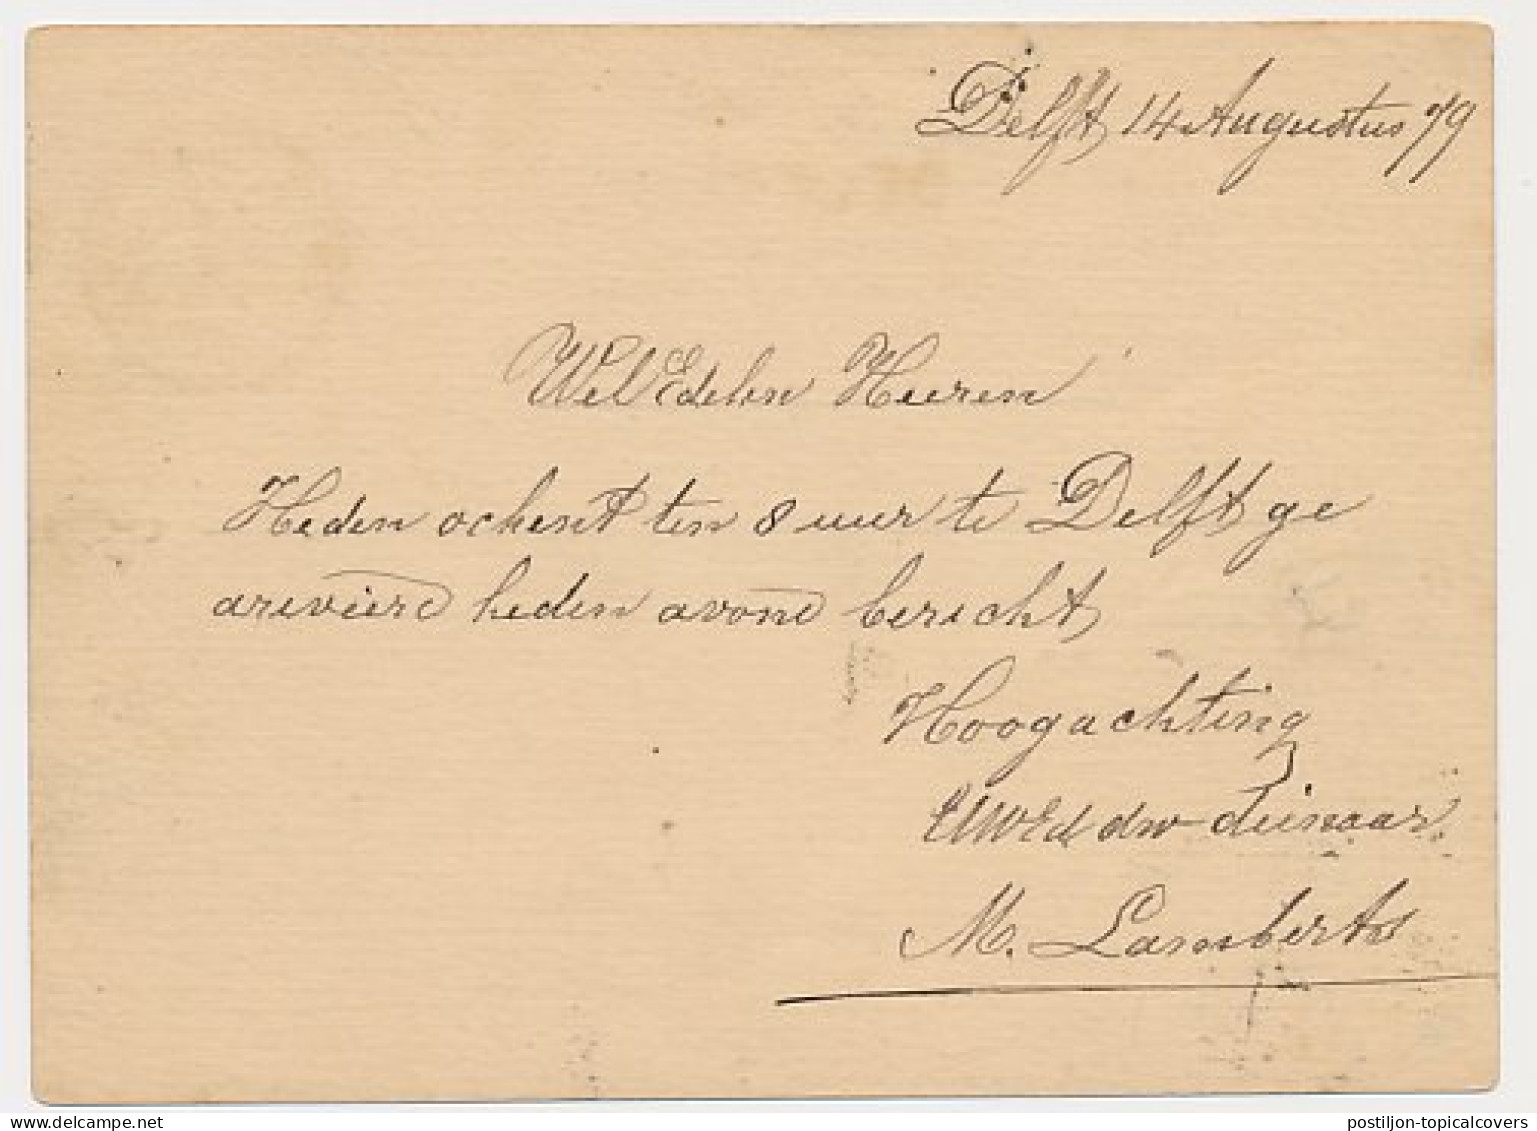 Delft 14 Augustus 79
WelEdelen Heeren
Heden ochent ten 8 uur te Delft ge
areveierd heden avond bericht
Hoogachting
UwEd dw deinaar
M. Lamberts
postiljon-topicalcovers.com